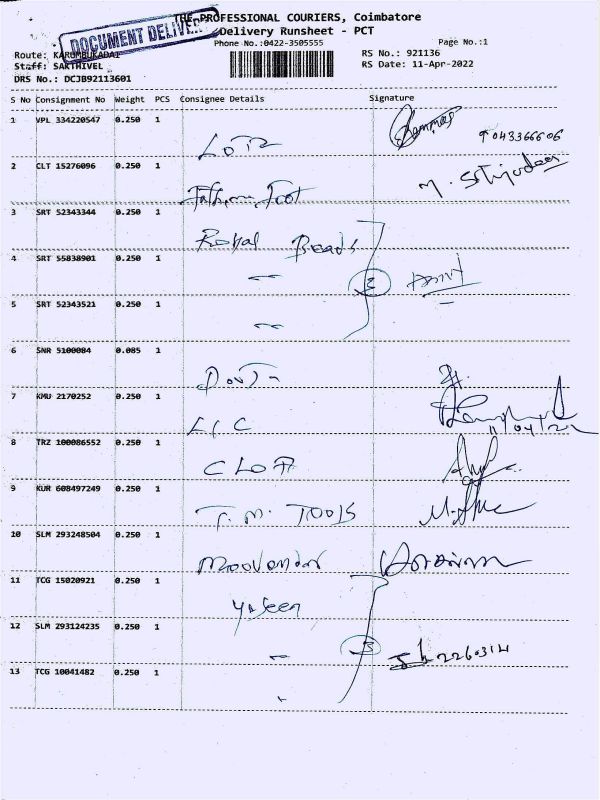 THE PROFESSIONAL COURIERS, Coimbatore
DOCUMENT DELIVE
Delivery Runsheet - PCT
Phone No.:0422-3505555
Page No.:1
Route: KARUMBUKADAI
RS No.: 921136
Staff: SAKTHIVEL
RS Date: 11-Apr-2022
DRS No.: DCJB92113601
S No Consignment No Weight PCS Consignee Details Signature
1 VPL 334220547 0.250 1
2 CLT 15276096 0.250 1
3 SRT 52343344 0.250 1
Royal Beads
4 SRT 55838901 0.250 1
3
5 SRT 52343521 0.250 1
6 SNR 5100084 0.085 1
7 KMU 2170252 0.250 1
LIC 11/04/22
8 TRZ 100086552 0.250 1
9 KUR 608497249 0.250 1
T. M. Tools
10 SLM 293248504 0.250 1
Moovendar
11 TCG 15020921 0.250 1
Yaseen
12 SLM 293124235 0.250 1
3
13 TCG 10041482 0.250 1